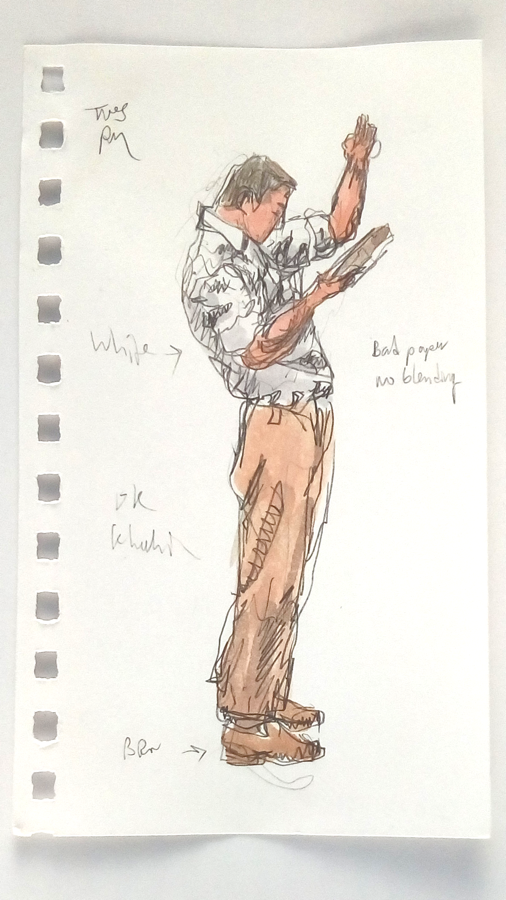 Tues
PM
White
Bad paper
no blending
DK
Khaki
BRN